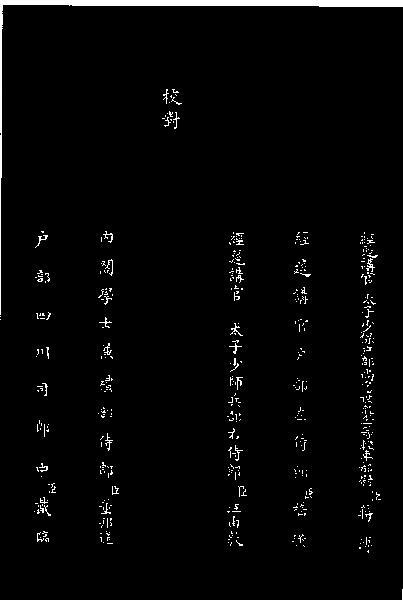 經筵講官 太子少保戶部尚書世襲 等輕車都尉臣蔣溥
經筵講官户部左侍郎臣嵇璜
經筵講官 太子少師兵部右侍郎臣汪由敦
校對
內閣學士兼禮部侍郎臣董邦達
户部四川司郎中臣戴臨